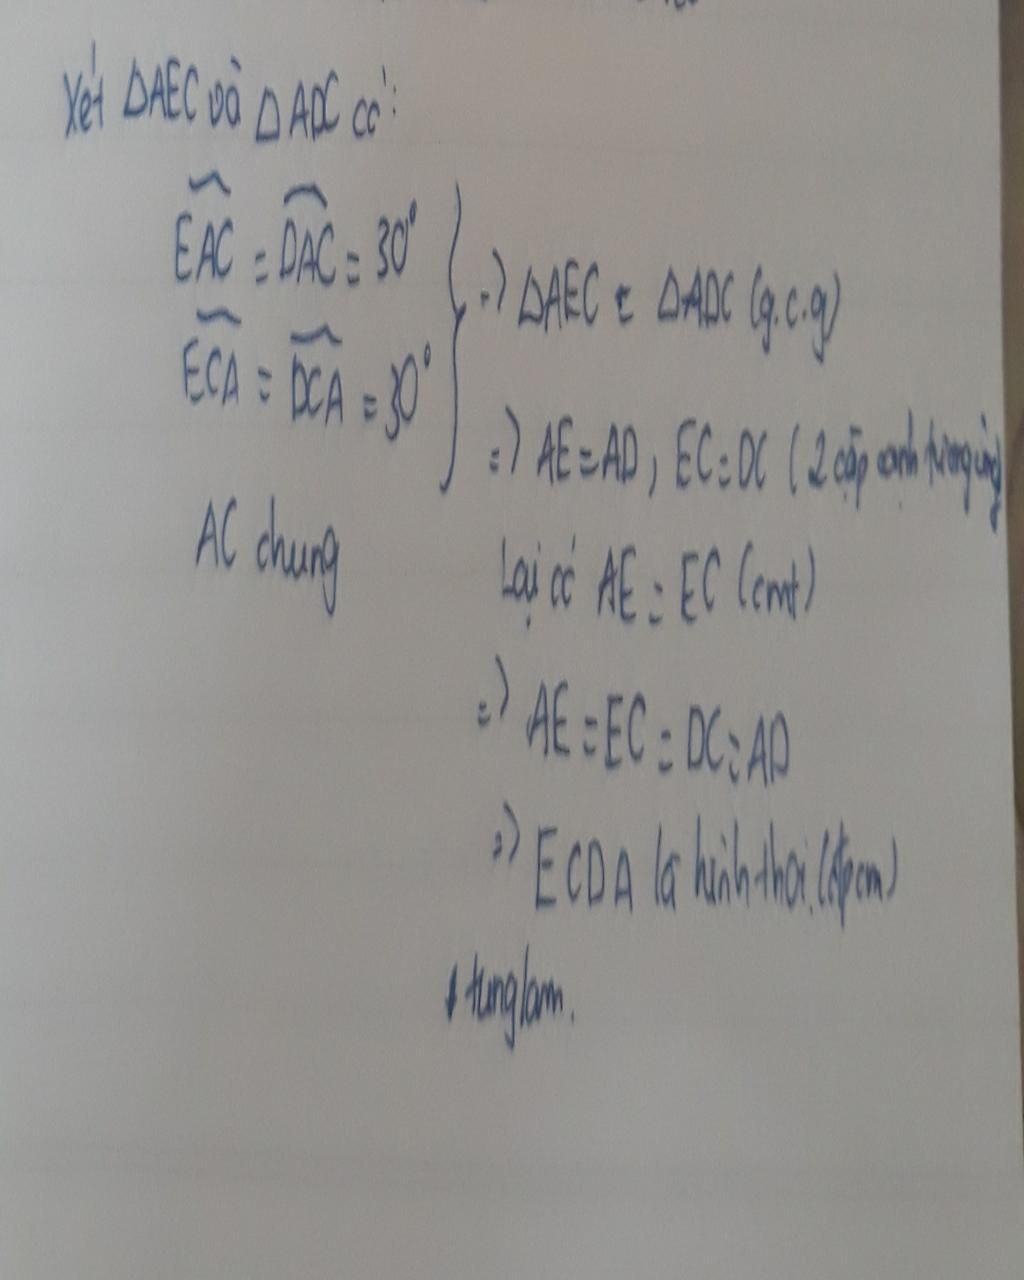 Xét ΔAEC và ΔADC có:
EAC = DAC = 30°
ECA = DCA = 30°
AC chung
=> ΔAEC = ΔADC (g.c.g)
=> AE = AD, EC = DC (2 cặp cạnh tương ứng)
Lại có AE = EC (cmt)
=> AE = EC = DC = AD
=> ECDA là hình thoi (đpcm)
tunglam.